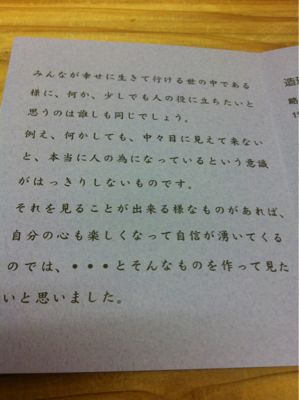 みんなが幸せに生きて行ける世の中である
様に、何か、少しでも人の役に立ちたいと
思うのは誰しも同じでしょう。
例え、何かしても、中々目に見えて来ない
と、本当に人の為になっているという意識
がはっきりしないものです。
それを見ることが出来る様なものがあれば、
自分の心も楽しくなって自信が湧いてくる
のでは、・・・とそんなものを作って見た
いと思いました。